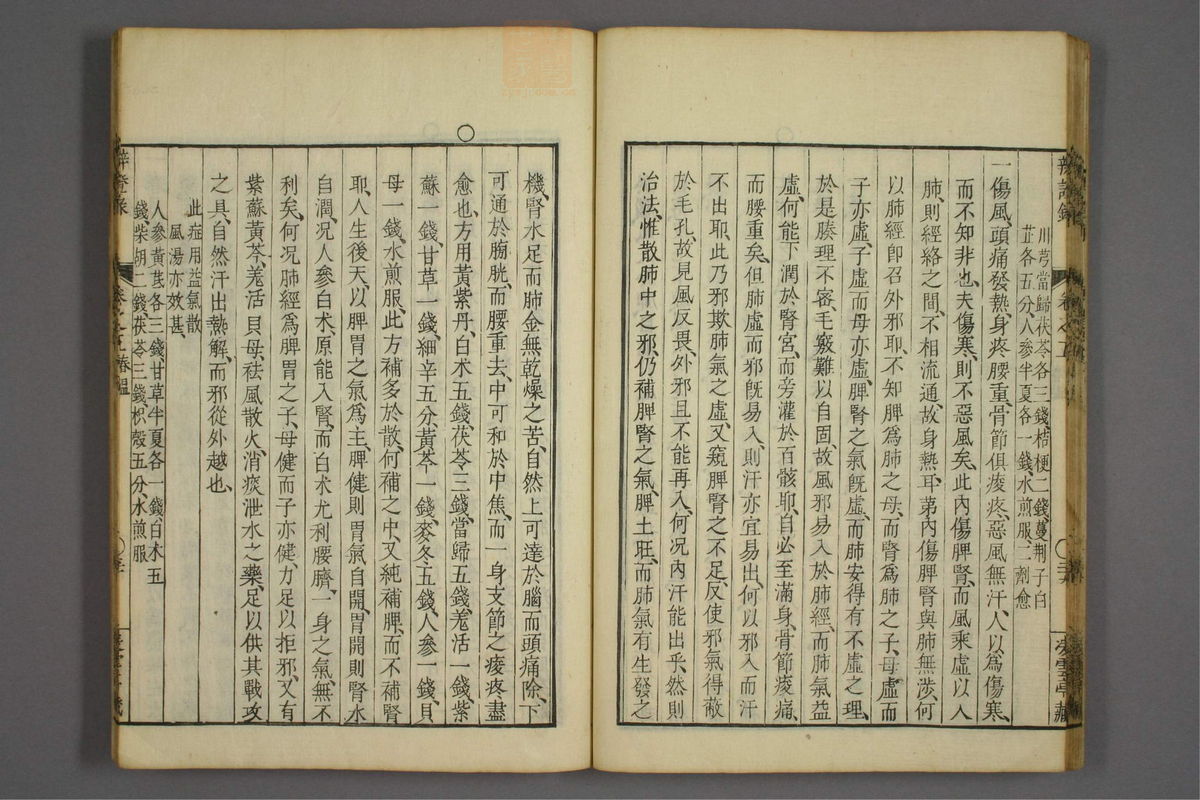 川芎當歸茯苓各三錢桔梗二錢蔓荆子白
芷各五分人參半夏各一錢水煎服二劑愈
一傷風頭痛發熱身疼腰重骨節俱痠疼惡風無汗人以爲傷寒
而不知非也夫傷寒則不惡風矣此內傷脾腎而風乘虛以入
肺則經絡之間不相流通故身熱耳第內傷脾腎與肺無涉何
以肺經卽召外邪耶不知脾爲肺之母而腎爲肺之子母虛而
子亦虛子虛而母亦虛脾腎之氣旣虛而肺安得有不虛之理
於是腠理不密毛竅難以自固故風邪易入於肺經而肺氣益
虛何能下潤於腎宮而旁灌於百骸耶自必至滿身骨節痠痛
而腰重矣但肺虛而邪旣易入則汗亦宜易出何以邪入而汗
不出耶此乃邪欺肺氣之虛又窺脾腎之不足反使邪氣得蔽
於毛孔故見風反畏外邪且不能再入何况內汗能出乎然則
治法惟散肺中之邪仍補脾腎之氣脾土旺而肺氣有生發之
機腎水足而肺金無乾燥之苦自然上可達於腦而頭痛除下
可通於膀胱而腰重去中可和於中焦而一身支節之痠疼盡
愈也方用黃紫丹白术五錢茯苓三錢當歸五錢羗活一錢紫
蘇一錢甘草一錢細辛五分黃芩一錢麥冬五錢人參一錢貝
母一錢水煎服此方補多於散何補之中又純補脾而不補腎
耶人生後天以脾胃之氣爲主脾健則胃氣自開胃開則腎水
自潤况人參白术原能入腎而白术尤利腰臍一身之氣無不
利矣何况肺經爲脾胃之子母健而子亦健力足以拒邪又有
紫蘇黃芩羗活貝母祛風散火消痰泄水之藥足以供其戰攻
之具自然汗出熱解而邪從外越也
此症用益氣散
風湯亦效甚
人參黃芪各三錢甘草半夏各一錢白术五
錢柴胡二錢茯苓三錢枳殼五分水煎服